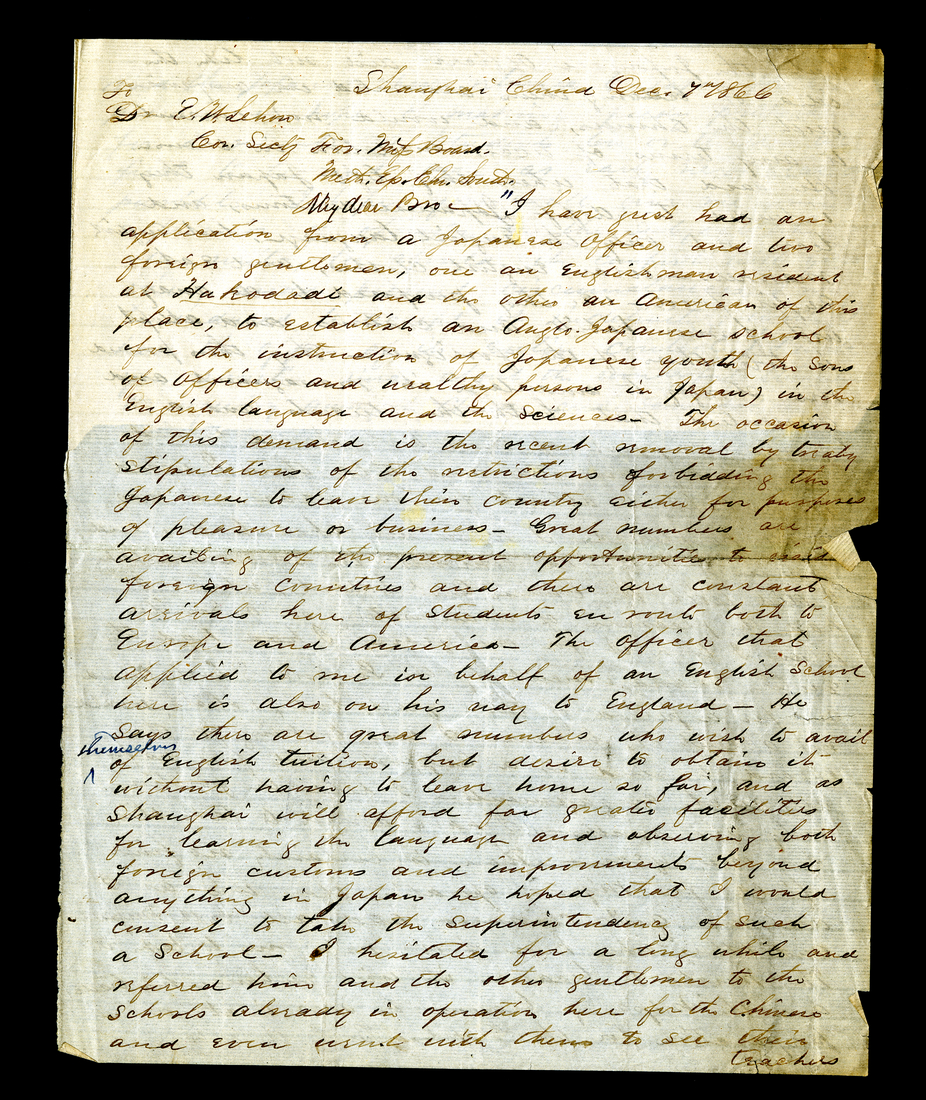 Shanghai China Dec. 7th 1866
To
Dr E. W. Sehon
Cor. Secty For. Miss Board.
Meth. Ep. Ch. South.
My dear Bro— "I have just had an
application from a Japanese Officer and two
foreign gentlemen, one an Englishman resident
at Hakodadi and the other an American of this
place, to establish an Anglo-Japanese school
for the instruction of Japanese youth (the sons
of Officers and wealthy persons in Japan) in the
English language and the sciences— The occasion
of this demand is the recent removal by treaty
stipulations of the restrictions forbidding the
Japanese to leave their country either for purposes
of pleasure or business— Great numbers are
availing of the present opportunities to visit
foreign countries and there are constant
arrivals here of students en route both to
Europe and America— The Officer that
applied to me in behalf of an English School
here is also on his way to England— He
says there are great numbers who wish to avail
themselves
of English tuition, but desire to obtain it
without having to leave home so far, and as
Shanghai will afford far greater facilities
for learning the language and observing both
foreign customs and improvements beyond
anything in Japan he hoped that I would
consent to take the superintendency of such
a School— I hesitated for a long while and
referred him and the other gentlemen to the
schools already in operation here for the Chinese
and even went with them to see their
teachers